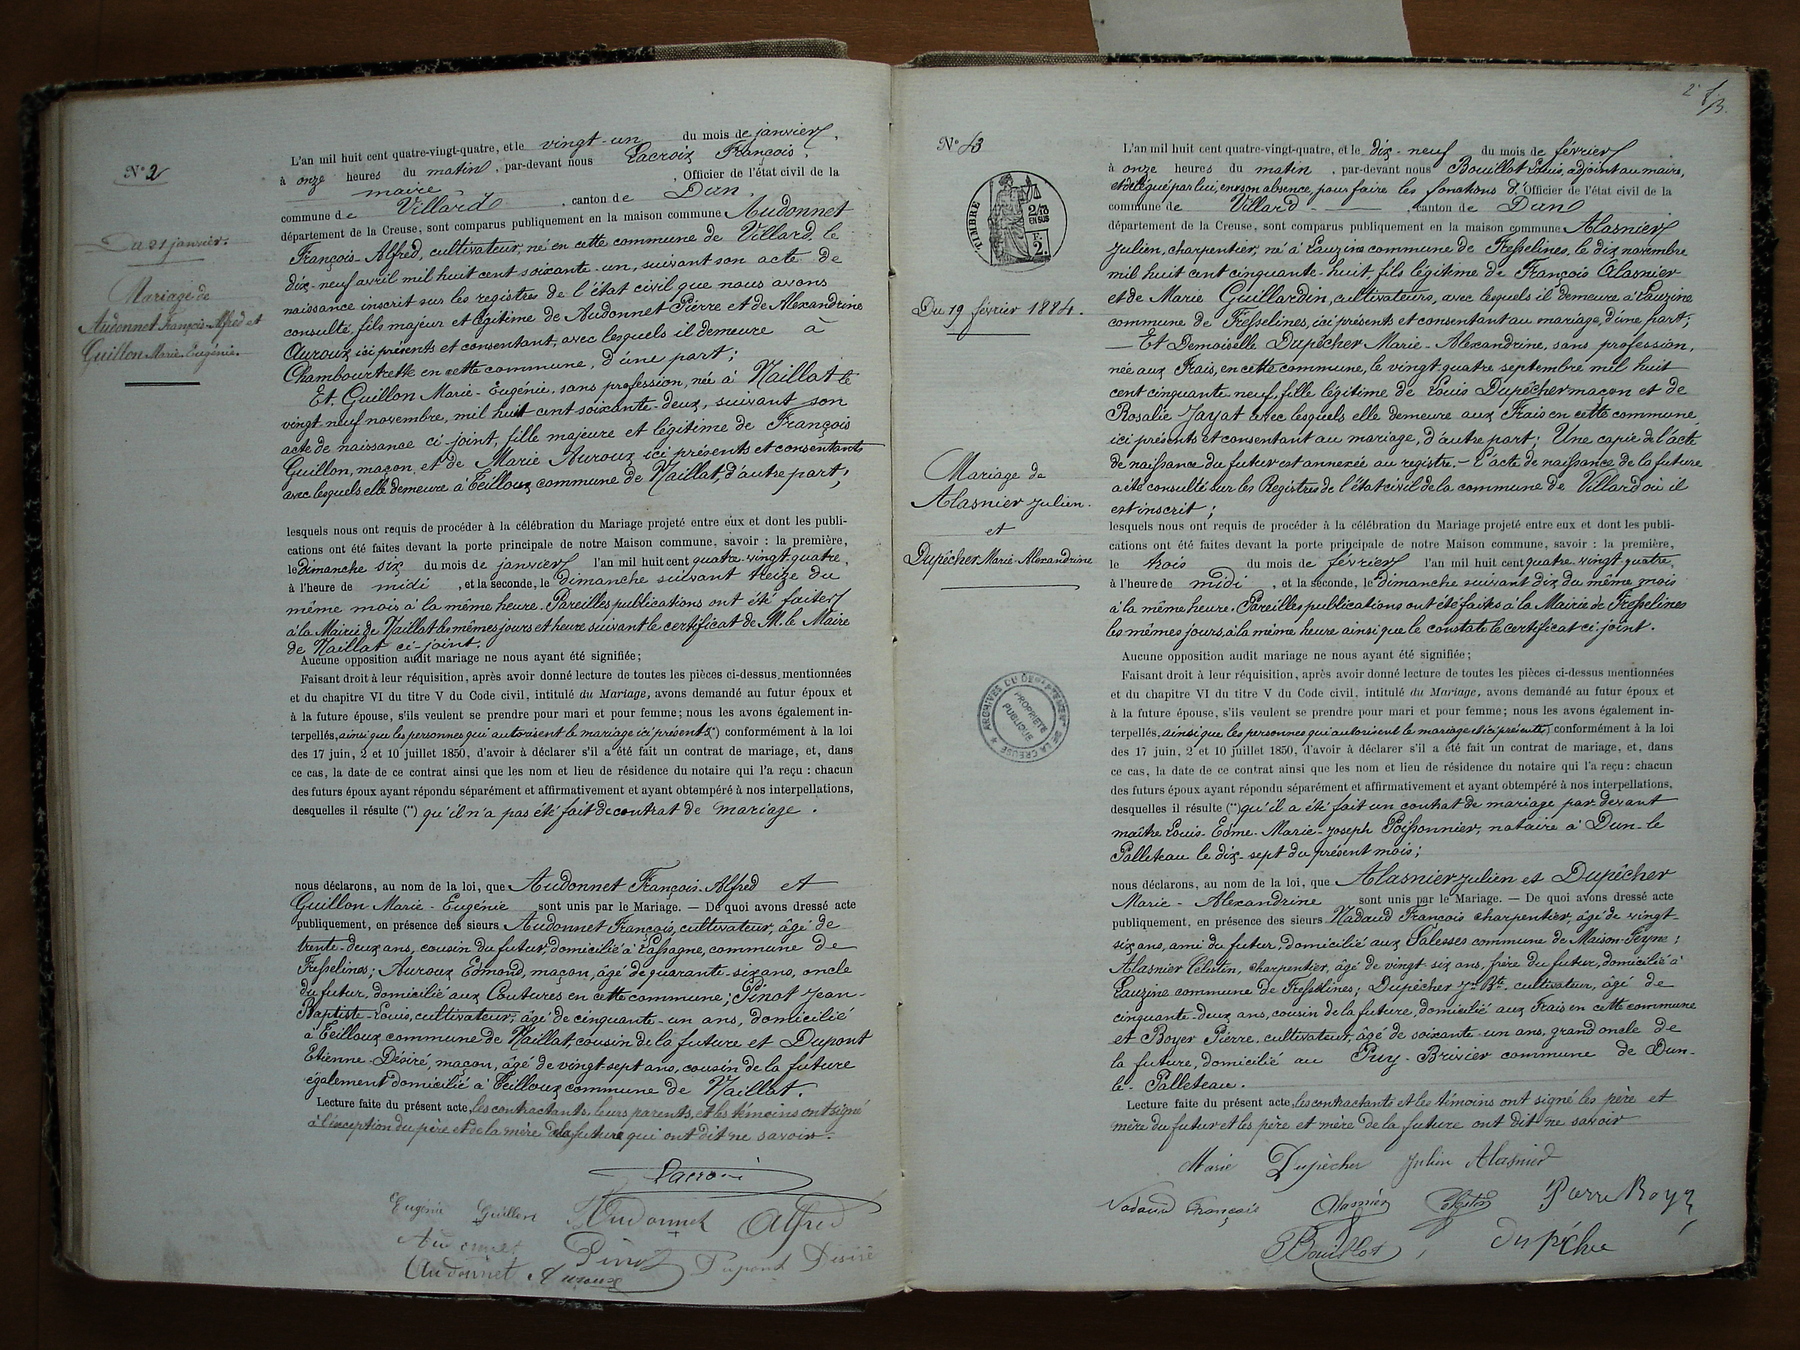 N° 2
Du 21 janvier.
Mariage de
Audonnet François-Alfred et
Guillon Marie-Eugénie.
L'an mil huit cent quatre-vingt-quatre, et le vingt-un du mois de janvier,
à onze heures du matin, par-devant nous Lacroix François,
maire, Officier de l'état civil de la
commune de Villard, canton de Dun,
département de la Creuse, sont comparus publiquement en la maison commune Audonnet
François-Alfred, cultivateur, né en cette commune de Villard, le
dix-neuf avril mil huit cent soixante-un, suivant son acte de
naissance inscrit sur les registres de l'état civil que nous avons
consulté, fils majeur et légitime de Audonnet Pierre et de Alexandrine
Auroux ici présents et consentant, avec lesquels il demeure à
en cette commune, d'une part;
Et Guillon Marie-Eugénie, sans profession, née à Naillat le
vingt-neuf novembre, mil huit cent soixante-deux, suivant son
acte de naissance ci-joint, fille majeure et légitime de François
Guillon, maçon, et de Marie Auroux ici présents et consentants
avec lesquels elle demeure à Teilloux commune de Naillat, d'autre part;
lesquels nous ont requis de procéder à la célébration du Mariage projeté entre eux et dont les publi-
cations ont été faites devant la porte principale de notre Maison commune, savoir : la première,
le dimanche six du mois de janvier l'an mil huit cent quatre-vingt-quatre,
à l'heure de midi, et la seconde, le dimanche suivant treize du
même mois à la même heure. Pareilles publications ont été faites
à la Mairie de Naillat les mêmes jours et heure suivant le certificat de M. le Maire
de Naillat ci-joint.
Aucune opposition audit mariage ne nous ayant été signifiée;
Faisant droit à leur réquisition, après avoir donné lecture de toutes les pièces ci-dessus, mentionnées
et du chapitre VI du titre V du Code civil, intitulé du Mariage, avons demandé au futur époux et
à la future épouse, s'ils veulent se prendre pour mari et pour femme; nous les avons également in-
terpellés, ainsi que les personnes qui autorisent le mariage ici présents (*) conformément à la loi
des 17 juin, 2 et 10 juillet 1850, d'avoir à déclarer s'il a été fait un contrat de mariage, et, dans
ce cas, la date de ce contrat ainsi que les nom et lieu de résidence du notaire qui l'a reçu : chacun
des futurs époux ayant répondu séparément et affirmativement et ayant obtempéré à nos interpellations,
desquelles il résulte (**) qu'il n'a pas été fait de contrat de mariage.
nous déclarons, au nom de la loi, que Audonnet François-Alfred et
Guillon Marie-Eugénie sont unis par le Mariage. — De quoi avons dressé acte
publiquement, en présence des sieurs Audonnet François, cultivateur, âgé de
trente-deux ans, cousin du futur, domicilié à Lassagne, commune de
Fresselines; Auroux Edmond, maçon, âgé de quarante-six ans, oncle
du futur, domicilié aux Coutures en cette commune; Pinot Jean-
Baptiste-Louis, cultivateur, âgé de cinquante-un ans, domicilié
à Teilloux commune de Naillat cousin de la future et Dupont
Etienne-Désiré, maçon, âgé de vingt-sept ans, cousin de la future
également domicilié à Teilloux commune de Naillat.
Lecture faite du présent acte, les contractants, leurs parents, et les témoins ont signé
à l'exception du père et de la mère de la future qui ont dit ne savoir.
Lacroix
Eugénie Guillon Audonnet Alfred
Audonnet Pinot Dupont Désiré
Audonnet Auroux
2
N° 3
TIMBRE
2/10
EN SUS
2
Du 19 février 1884.
Mariage de
Alasnier Julien
et
Dupêcher Marie-Alexandrine
ARCHIVES DU DEPARTEMENT DE LA CREUSE
PROPRIÉTÉ
PUBLIQUE
L'an mil huit cent quatre-vingt-quatre, et le dix-neuf du mois de février
à onze heures du matin, par-devant nous Bouillot Louis, adjoint au maire,
et délégué par lui, en son absence, pour faire les fonctions d'Officier de l'état civil de la
commune de Villard, canton de Dun
département de la Creuse, sont comparus publiquement en la maison commune Alasnier
Julien, charpentier, né à Lauzine commune de Fresselines, le dix novembre
mil huit cent cinquante-huit, fils légitime de François Alasnier
et de Marie Guillardin, cultivateurs, avec lesquels il demeure à Lauzine
commune de Fresselines, ici présents et consentant au mariage, d'une part;
— Et Demoiselle Dupêcher Marie-Alexandrine, sans profession,
née aux Frais, en cette commune, le vingt-quatre septembre mil huit
cent cinquante-neuf, fille légitime de Louis Dupêcher maçon et de
Rosalie Jayat avec lesquels elle demeure aux Frais en cette commune,
ici présents et consentant au mariage, d'autre part; Une copie de l'acte
de naissance du futur est annexée au registre. — L'acte de naissance de la future
a été consulté sur les Registres de l'état civil de la commune de Villard où il
est inscrit;
lesquels nous ont requis de procéder à la célébration du Mariage projeté entre eux et dont les publi-
cations ont été faites devant la porte principale de notre Maison commune, savoir : la première,
le trois du mois de février l'an mil huit cent quatre-vingt-quatre,
à l'heure de midi, et la seconde, le dimanche suivant dix du même mois
à la même heure. Pareilles publications ont été faites à la Mairie de Fresselines
les mêmes jours, à la même heure ainsi que le constate le certificat ci-joint.
Aucune opposition audit mariage ne nous ayant été signifiée;
Faisant droit à leur réquisition, après avoir donné lecture de toutes les pièces ci-dessus mentionnées
et du chapitre VI du titre V du Code civil, intitulé du Mariage, avons demandé au futur époux et
à la future épouse, s'ils veulent se prendre pour mari et pour femme; nous les avons également in-
terpellés, ainsi que les personnes qui autorisent le mariage et ici présents, conformément à la loi
des 17 juin, 2 et 10 juillet 1850, d'avoir à déclarer s'il a été fait un contrat de mariage, et, dans
ce cas, la date de ce contrat ainsi que les nom et lieu de résidence du notaire qui l'a reçu : chacun
des futurs époux ayant répondu séparément et affirmativement et ayant obtempéré à nos interpellations,
desquelles il résulte (**) qu'il a été fait un contrat de mariage par devant
maître Louis-Edme-Marie-Joseph Poissonnier, notaire à Dun-le
Palleteau le dix-sept du présent mois;
nous déclarons, au nom de la loi, que Alasnier Julien et Dupêcher
Marie-Alexandrine sont unis par le Mariage. — De quoi avons dressé acte
publiquement, en présence des sieurs Nadaud François charpentier, âgé de vingt-
six ans, ami du futur, domicilié aux Salesses commune de Maison-Feyne;
Alasnier Célestin, charpentier, âgé de vingt-six ans, frère du futur, domicilié à
Lauzine commune de Fresselines; Dupêcher Jn Bte, cultivateur, âgé de
cinquante-deux ans, cousin de la future, domicilié aux Frais en cette commune
et Boyer Pierre, cultivateur, âgé de soixante-un ans, grand oncle de
la future, domicilié au Puy-Brivier commune de Dun-
le-Palleteau.
Lecture faite du présent acte, les contractants et les témoins ont signé les père et
mère du futur et les père et mère de la future ont dit ne savoir
Marie Dupêcher Julien Alasnier
Nadaud François Alasnier Pierre Boyer
Bouillot Dupêcher